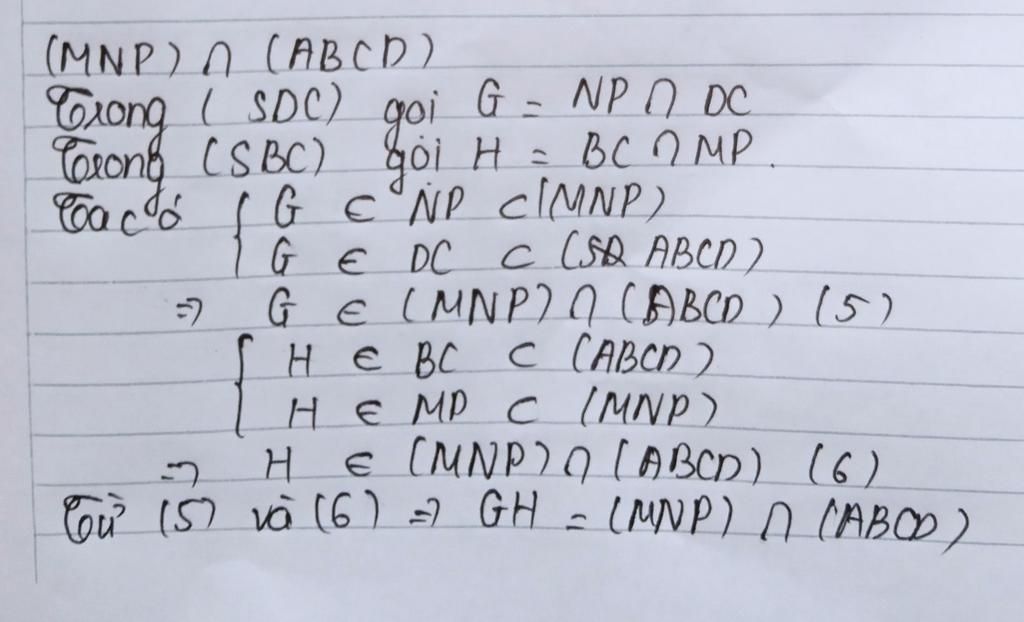 (MNP) ∩ (ABCD)
Trong ( SDC) gọi G = NP ∩ DC
Trong (SBC) gọi H = BC ∩ MP.
Ta có { G ∈ NP ⊂ (MNP)
G ∈ DC ⊂ ( ABCD)
⇒ G ∈ (MNP) ∩ (ABCD) (5)
{ H ∈ BC ⊂ (ABCD)
H ∈ MP ⊂ (MNP)
⇒ H ∈ (MNP) ∩ (ABCD) (6)
Từ (5) và (6) ⇒ GH = (MNP) ∩ (ABCD)